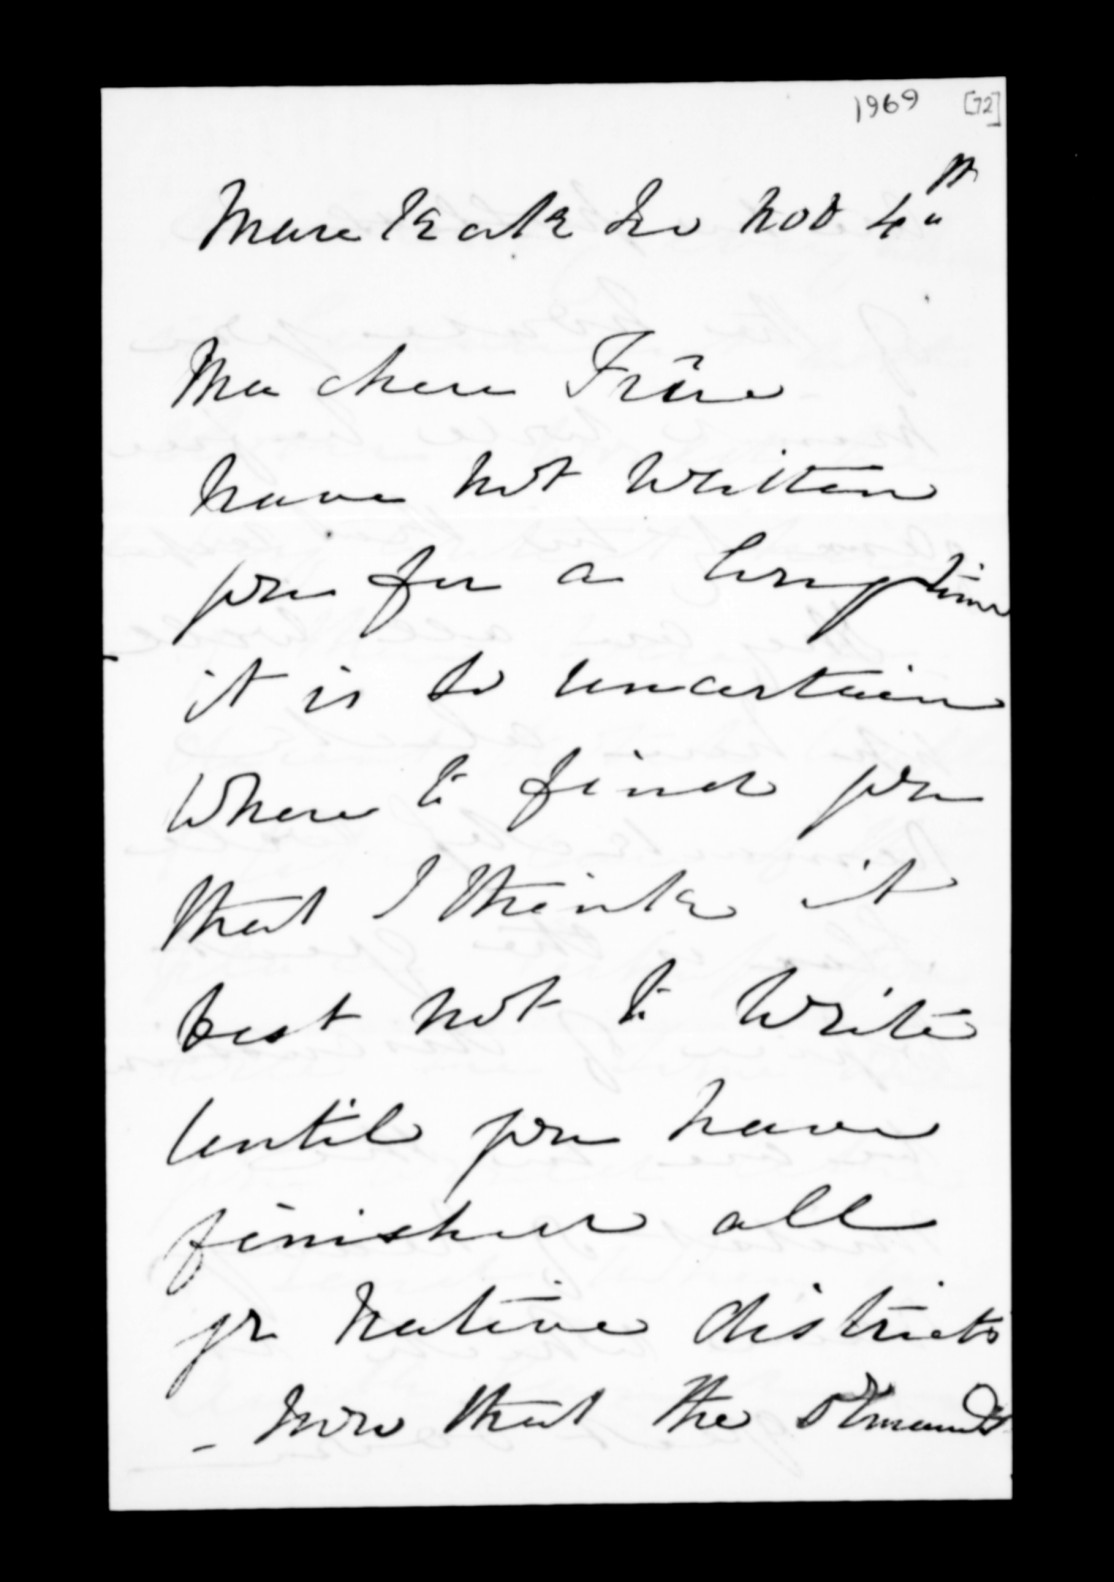 1969 [72]
Marekakaho Nov 4th
Ma chere Frère
have not written
you for a long time
it is so uncertain
where to find you
that I think it
best not to write
until you have
finished all
yr native districts
- Now that the Ormonds